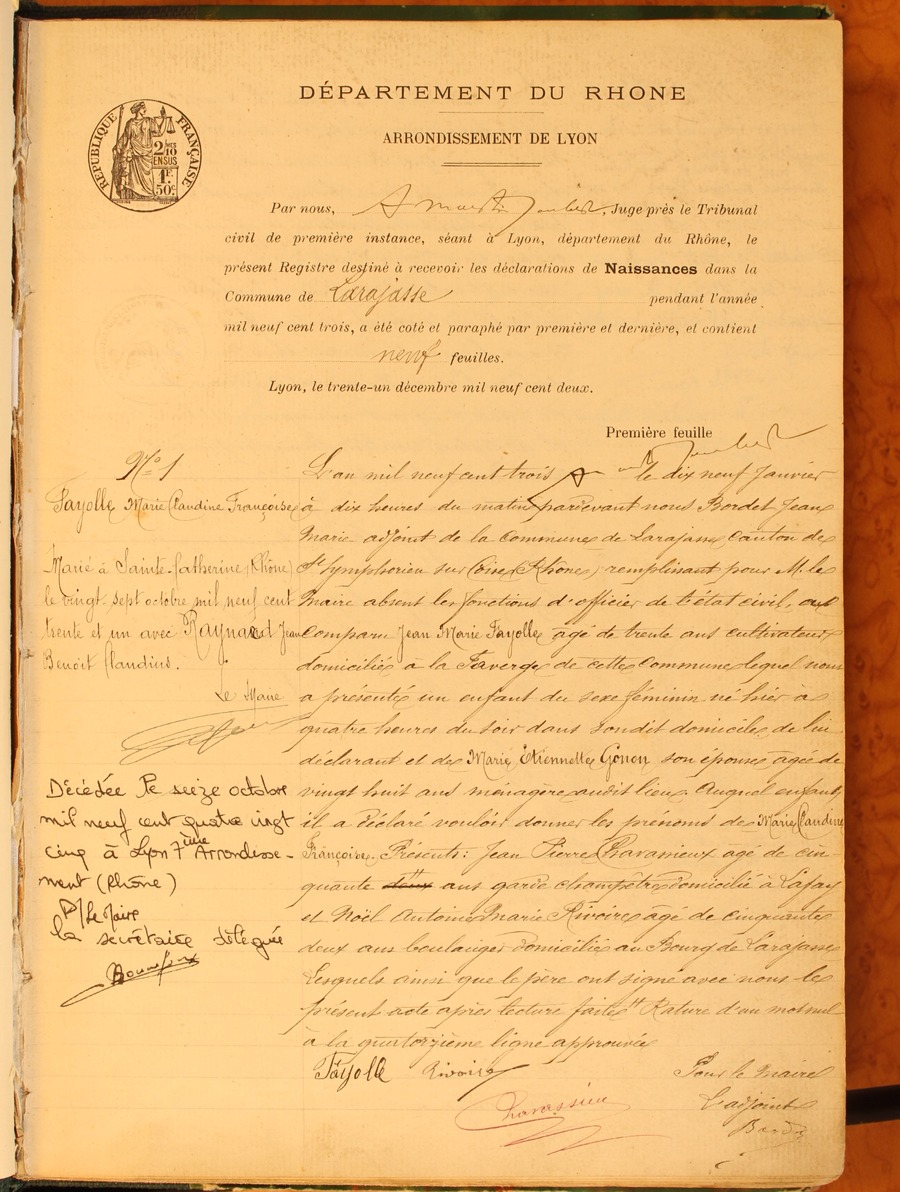 DÉPARTEMENT DU RHONE
ARRONDISSEMENT DE LYON
RÉPUBLIQUE FRANÇAISE
2/10 EN SUS
1F 50c
Par nous, Joubert, Juge près le Tribunal
civil de première instance, séant à Lyon, département du Rhône, le
présent Registre destiné à recevoir les déclarations de Naissances dans la
Commune de Larajasse pendant l'année
mil neuf cent trois, a été coté et paraphé par première et dernière, et contient
neuf feuilles.
Lyon, le trente-un décembre mil neuf cent deux.
Première feuille
No 1
Fayolle Marie Claudine Françoise
Marié à Sainte-Catherine (Rhône)
le vingt-sept octobre mil neuf cent
trente et un avec Raynaud Jean
Benoît Claudius.
Le Maire
Décédée le seize octobre
mil neuf cent quatre vingt
cinq à Lyon 7ème Arrondisse-
ment (Rhône)
P/Le Maire
la secrétaire déléguée
L'an mil neuf cent trois le dix neuf Janvier
à dix heures du matin pardevant nous Bordet Jean
Marie adjoint de la Commune de Larajasse canton de
St Symphorien sur Coise (Rhône) remplissant pour M. le
Maire absent les fonctions d'officier de l'état civil, est
comparu Jean Marie Fayolle âgé de trente ans cultivateur
domicilié à la Faverge de cette Commune lequel nous
a présenté un enfant du sexe féminin né hier à
quatre heures du soir dans sondit domicile de lui
déclarant et de Marie Etiennette Gonon son épouse âgée de
vingt huit ans ménagère audit lieu. Auquel enfant
il a déclaré vouloir donner les prénoms de Marie Claudine
Françoise. Présents: Jean Pierre Chavassieux âgé de cin-
quante deux ans garde champêtre domicilié à Lafay
et Noël Antoine Marie Rivoire âgé de cinquante
deux ans boulanger domicilié au Bourg de Larajasse
Lesquels ainsi que le père ont signé avec nous le
présent acte après lecture faite. Rature d'un mot nul
à la quatorzième ligne approuvée
Fayolle Rivoire Pour le Maire
Chavassieu L'adjoint